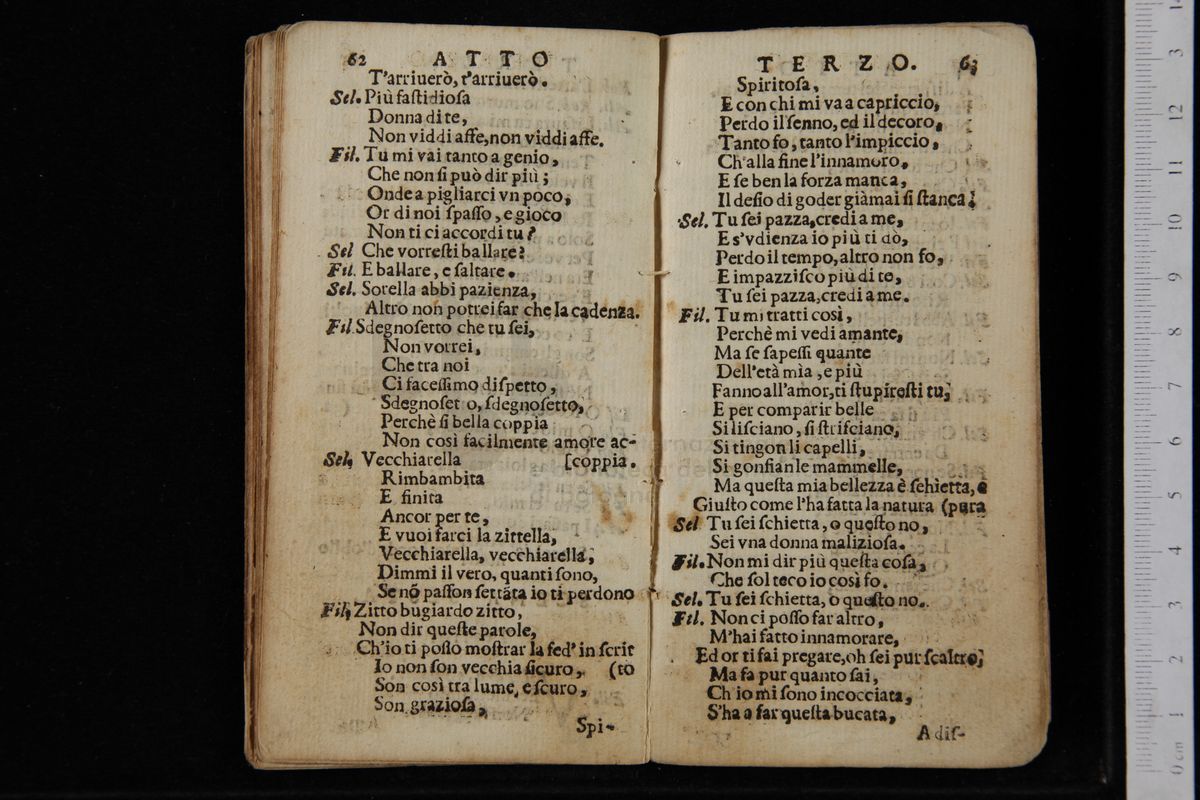 62 ATTO
T'arriuerò, t'arriuerò.
Sel. Più faſtidioſa
Donna di te,
Non viddi affe, non viddi affe.
Fil. Tu mi vai tanto a genio,
Che non ſi può dir più;
Onde a pigliarci vn poco,
Or di noi ſpaſſo, e gioco
Non ti ci accordi tu?
Sel Che vorreſti ballare?
Fil. E ballare, e ſaltare.
Sel. Sorella abbi pazienza,
Altro non potrei far che la cadenza.
Fil Sdegnoſetto che tu ſei,
Non vorrei,
Che tra noi
Ci faceſſimo diſpetto,
Sdegnoſet o, ſdegnoſetto,
Perchè ſi bella coppia
Non così facilmente amore ac-
Sel. Vecchiarella [coppia.
Rimbambita
E finita
Ancor per te,
E vuoi farci la zittella,
Vecchiarella, vecchiarella,
Dimmi il vero, quanti ſono,
Se nõ paſſon ſettãta io ti perdono
Fil. Zitto bugiardo zitto,
Non dir queſte parole,
Ch'io ti poſſo moſtrar la fed' in ſcrit
Io non ſon vecchia ſicuro, (to
Son così tra lume, e ſcuro,
Son grazioſa,
Spi-
TERZO. 63
Spiritoſa,
E con chi mi va a capriccio,
Perdo il ſenno, ed il decoro,
Tanto fo, tanto l'impiccio,
Ch'alla fine l'innamoro,
E ſe ben la forza manca,
Il deſio di goder giàmai ſi ſtanca!
Sel. Tu ſei pazza, credi a me,
E s'vdienza io più ti dò,
Perdo il tempo, altro non fo,
E impazziſco più di te,
Tu ſei pazza, credi a me.
Fil. Tu mi tratti così,
Perchè mi vedi amante,
Ma ſe ſapeſſi quante
Dell'età mia, e più
Fanno all'amor, ti ſtupireſti tu;
E per comparir belle
Si liſciano, ſi ſtriſciano,
Si tingon li capelli,
Si gonfian le mammelle,
Ma queſta mia bellezza è ſchietta, e
Giuſto come l'ha fatta la natura (pura
Sel Tu ſei ſchietta, o queſto no,
Sei vna donna malizioſa.
Fil. Non mi dir più queſta coſa,
Che ſol teco io così fo.
Sel. Tu ſei ſchietta, o queſto no.
Fil. Non ci poſſo far altro,
M'hai fatto innamorare,
Ed or ti fai pregare, oh ſei pur ſcaltro;
Ma fa pur quanto ſai,
Ch io mi ſono incocciata,
S'ha a far queſta bucata,
A diſ-